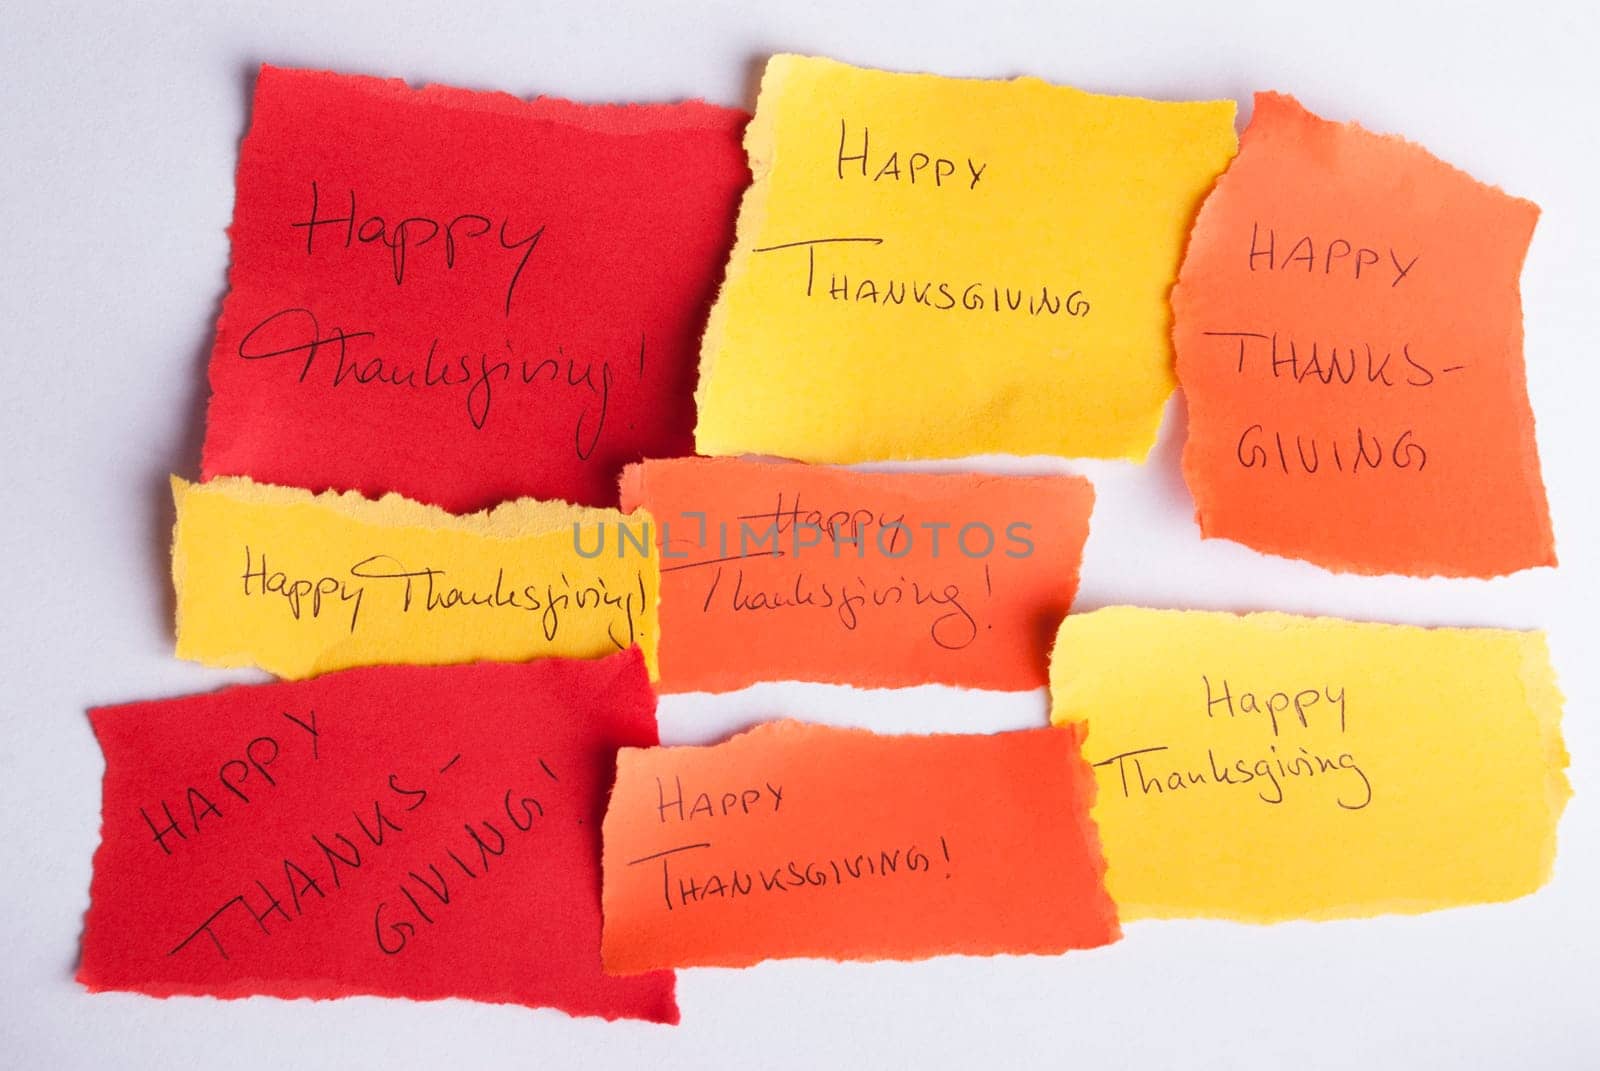 Happy
Thanksgiving!
HAPPY
THANKSGIVING
HAPPY
THANKS-
GIVING
Happy Thanksgiving!
Happy
Thanksgiving!
UNLIMPHOTOS
HAPPY
THANKS-
GIVING!
HAPPY
THANKSGIVING!
Happy
Thanksgiving